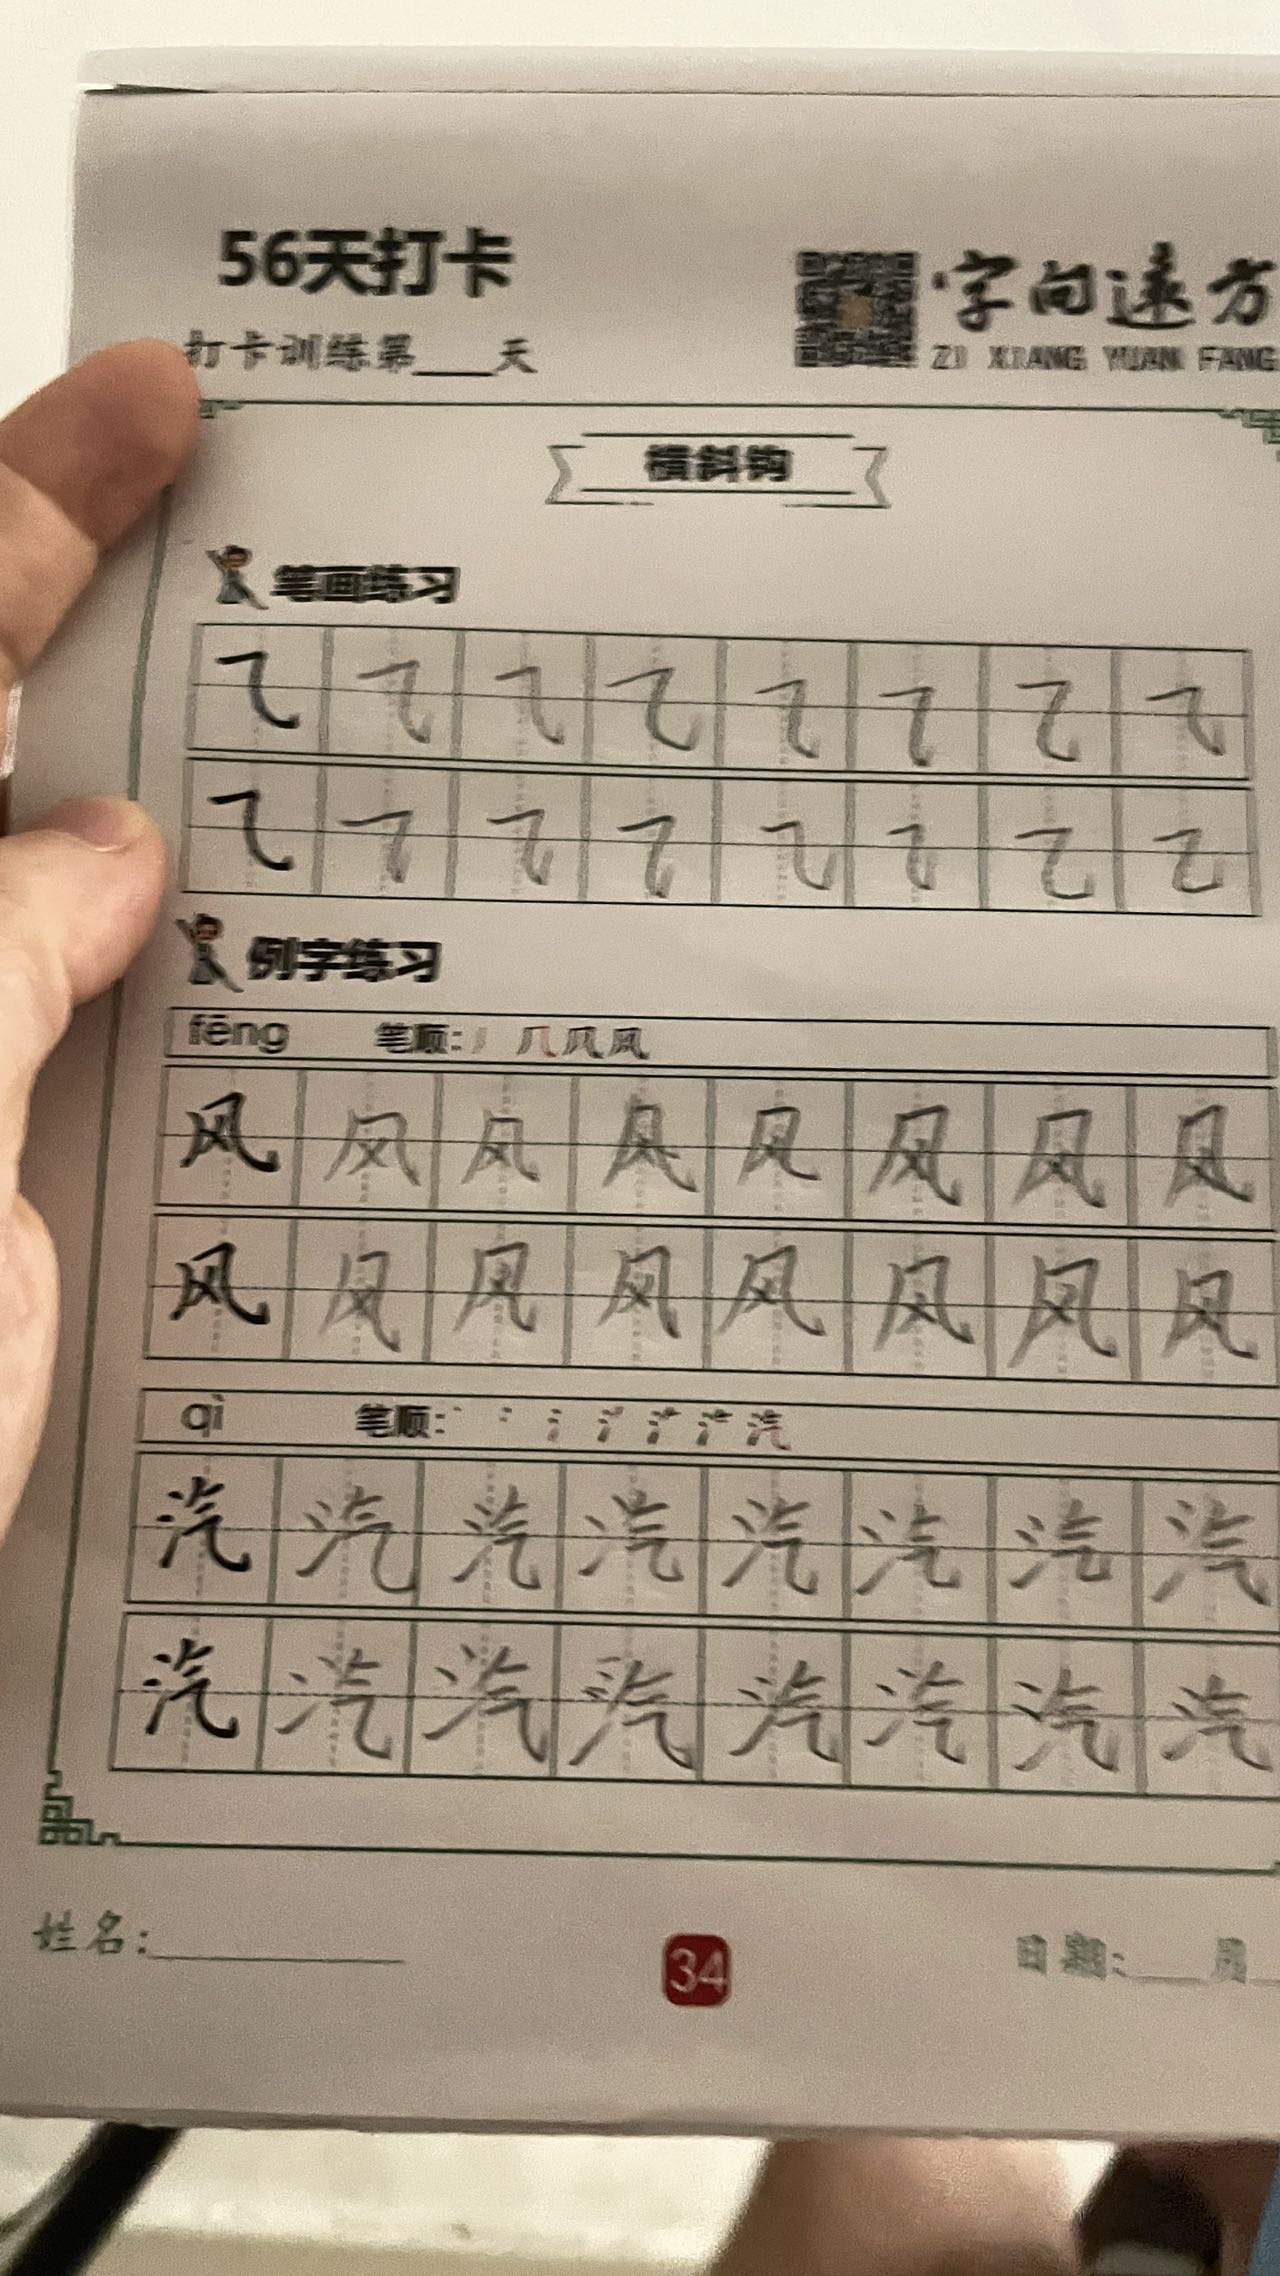 56天打卡
字向远方
打卡训练第___天
ZI XIANG YUAN FANG
横斜钩
笔画练习
㇈ ㇈ ㇈ ㇈ ㇈ ㇈ ㇈ ㇈
㇈ ㇈ ㇈ ㇈ ㇈ ㇈ ㇈ ㇈
例字练习
fēng 笔顺: 丿 几 凤 风
风 风 风 风 风 风 风 风
风 风 风 风 风 风 风 风
qì 笔顺: 汽
汽 汽 汽 汽 汽 汽 汽 汽
汽 汽 汽 汽 汽 汽 汽 汽
姓名:
34
日期:___月